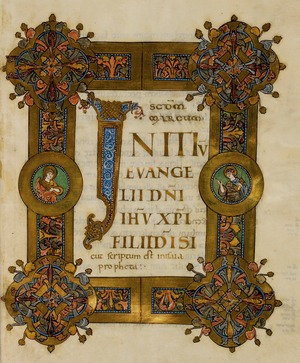 SCDM
MARCUM
INITIU
EVANGE
LII DÑI
IHV XPI
FILII DI SI
cut scriptum est in isaia
propheta: